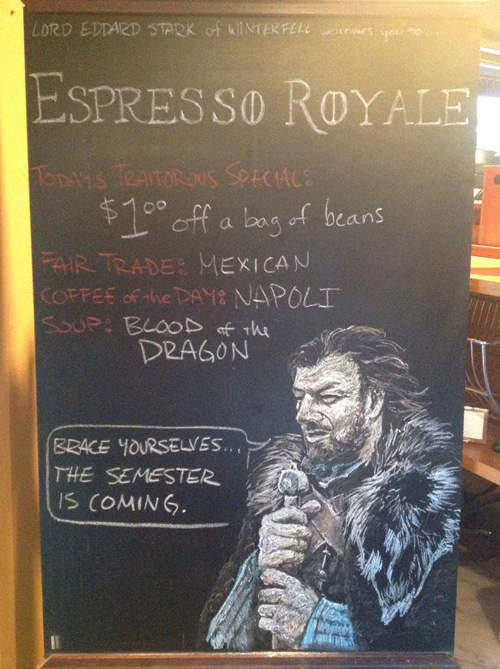 LORD EDDARD STARK of WINTERFELL welcomes you to...
ESPRESSO ROYALE
TODAY'S TRAITOROUS SPECIAL:
$1.00 off a bag of beans
FAIR TRADE: MEXICAN
COFFEE of the DAY: NAPOLI
SOUP: BLOOD of the
DRAGON
BRACE YOURSELVES...
THE SEMESTER
IS COMING.